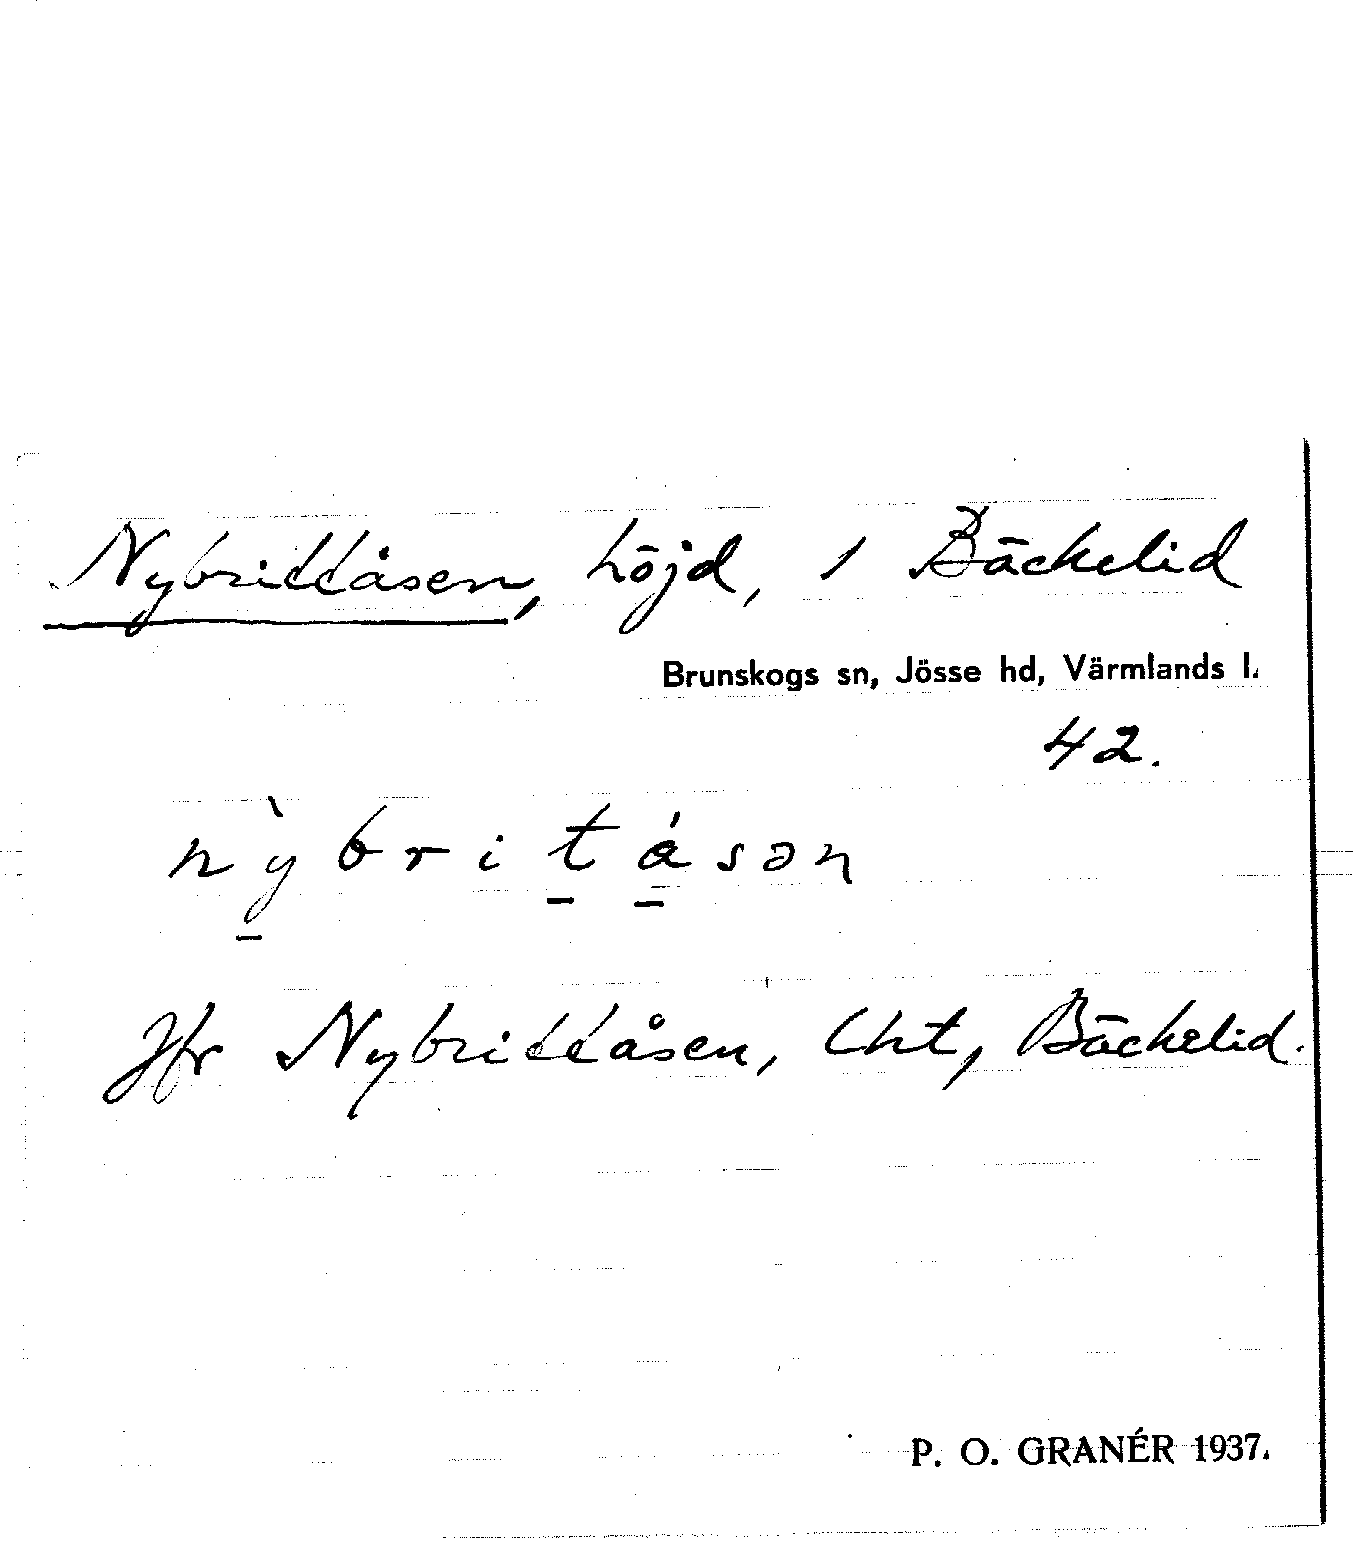 Nybrittåsen, höjd, 1 Bäckelid
Brunskogs sn, Jösse hd, Värmlands l.
42.
nỳbritásən
Jfr Nybrittåsen, lht, Bäckelid.
P. O. GRANÉR 1937.